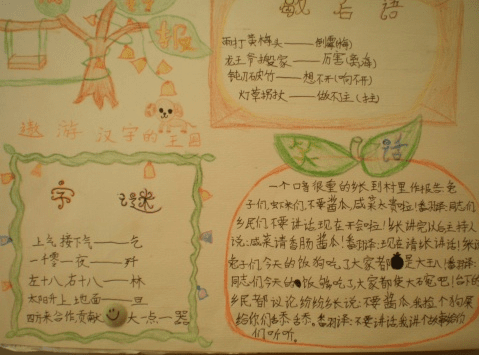 报
歇后语
雨打黄梅头——倒霉(梅)
龙王爷搬家——厉害(离海)
钝刀破竹——想不开(向不开)
灯草拐杖——做不主(拄)
遨游汉字的王国
字谜
上气接下气——乞
一千零一夜——歼
左十八右十八——林
太阳升上地面——旦
四方来合作贡献大一点——器
笑话
一个口音很重的乡长到村里作报告兔
子们,虾米们,不要酱瓜,咸菜太贵啦!(翻译:同志们
乡民们不要讲话现在开会啦!乡长讲完以后主持人
说:咸菜请香肠酱瓜!(翻译:现在请乡长讲话!乡长
兔子们今天的饭狗吃了大家都是大王八!(翻译:
同志们今天的饭够吃了大家都使大石宛巴!台下的
乡民都议论纷纷乡长说:不要酱瓜我捡个狗屎
给你们舔舔。(翻译:不要讲话我讲个故事给你
们听听。